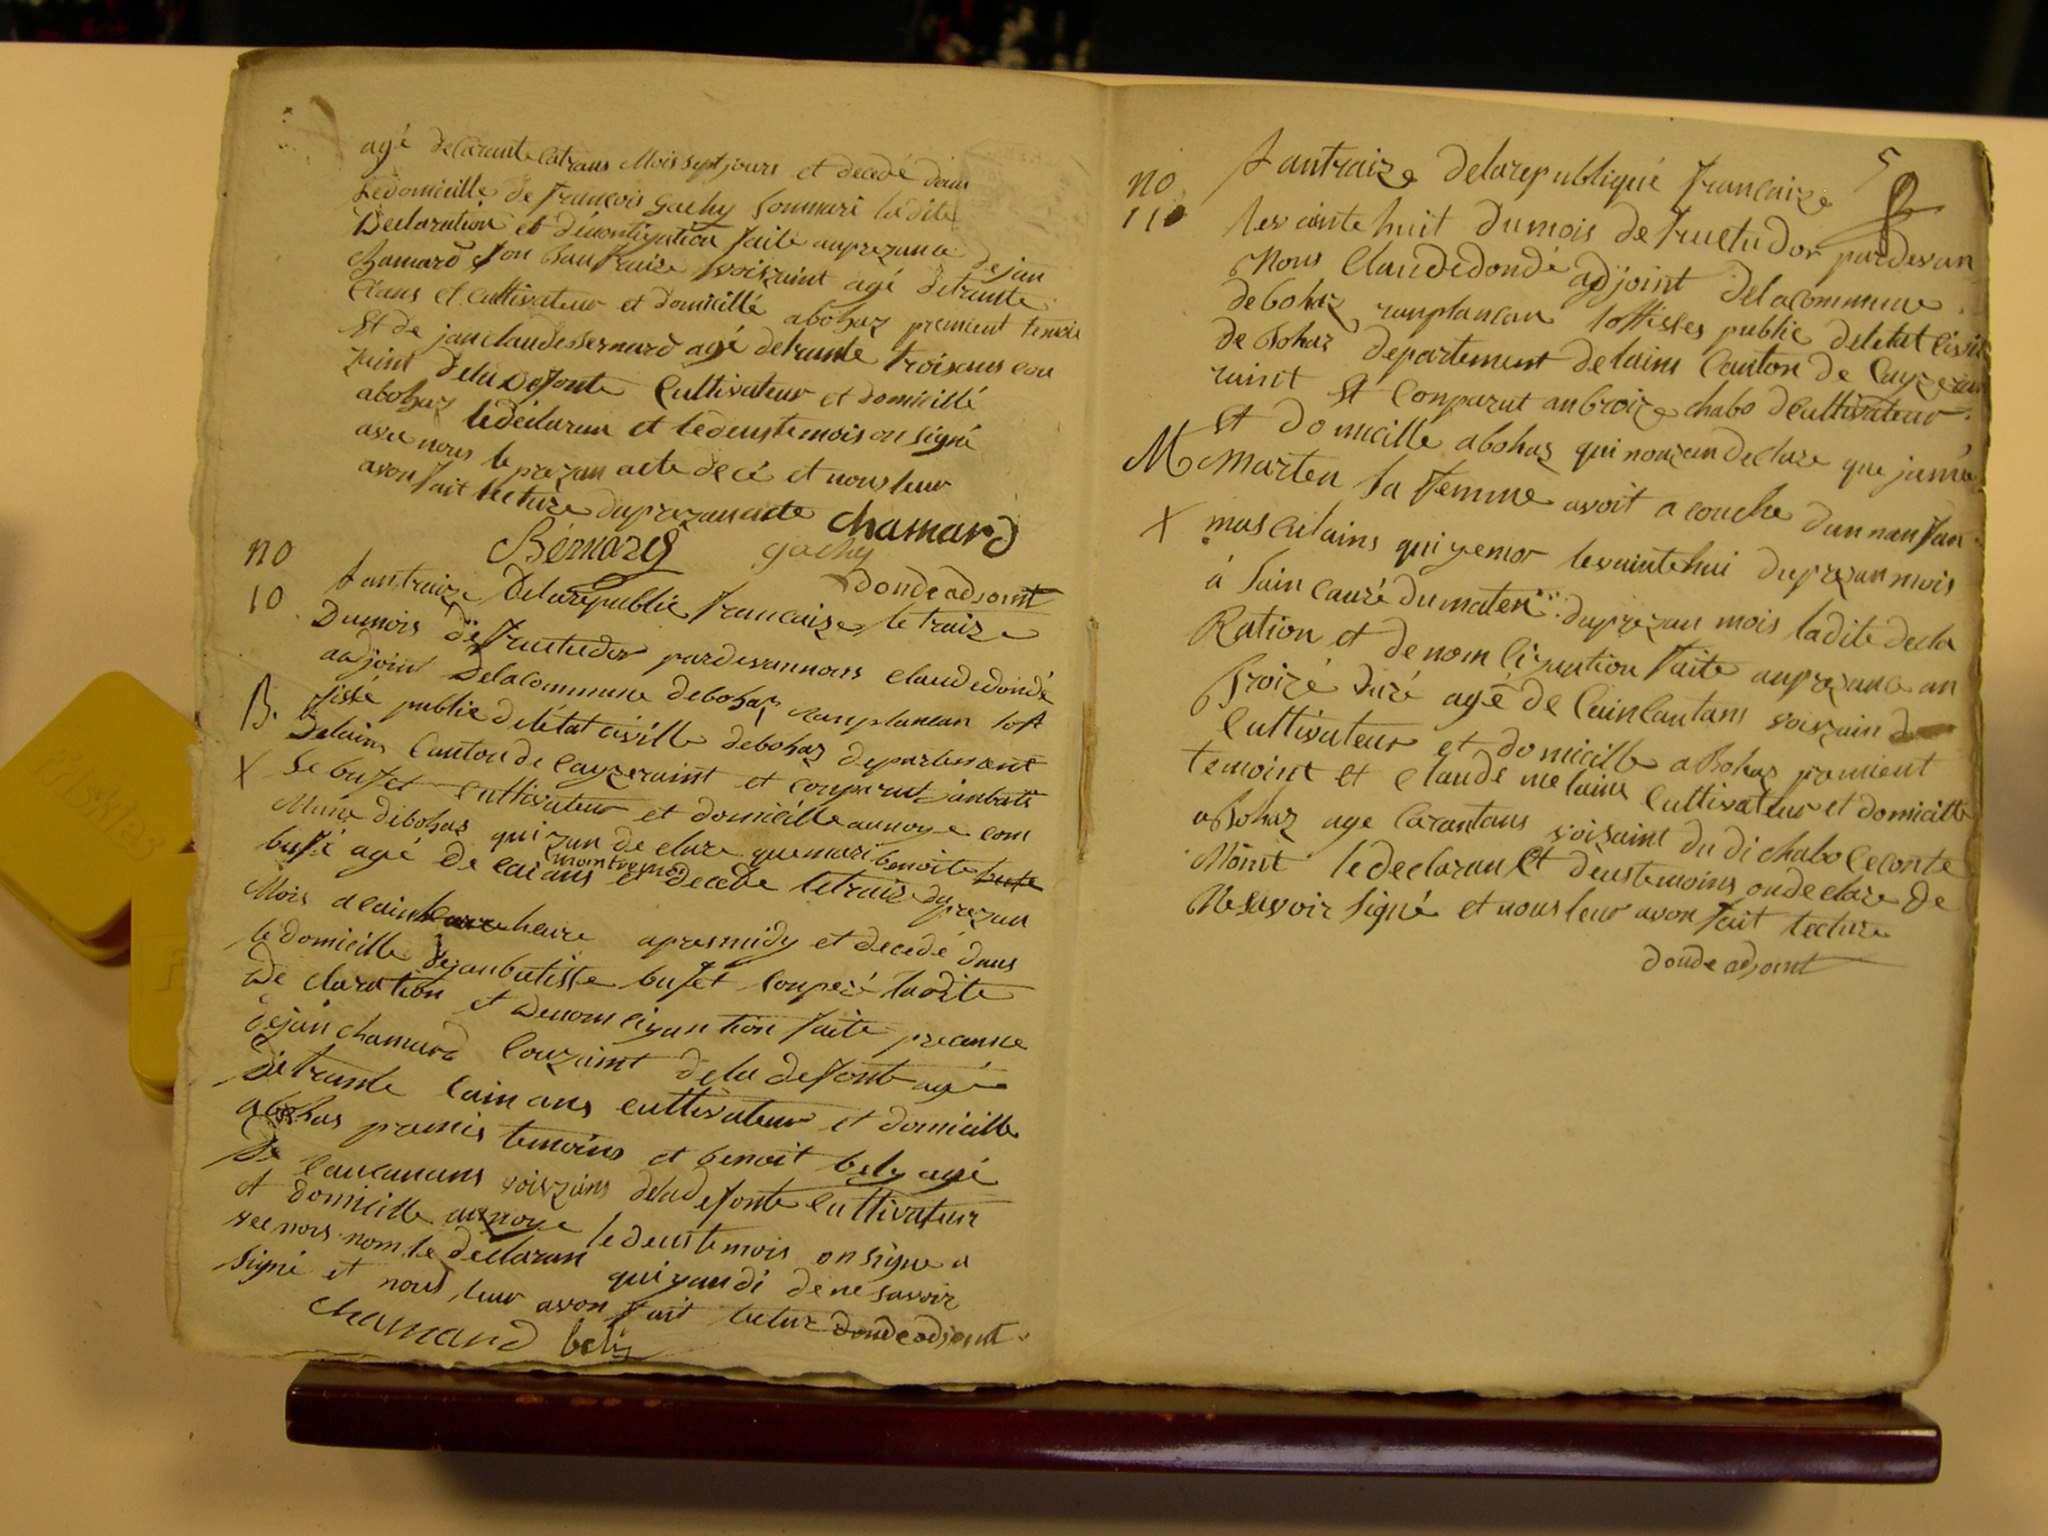 agé de carante catrans Mois sept jours et decedé dans
ledomicille de francois gachy sonmari ladite
Declaration et dénontiation faite anprezance dejan
chamard son baufraire voiszaint agé detrante
cl'ans et cultivateur et domicillé abohaz premient temoin
et de jan claude bernard agé detrante troisans cou
zaint deladefonte Cultivateur et domicillé
abohaz ledéclaran et ledeustemois on signé
avec nous le prezan acte decé et nous leur
avon fait lecture duprezan acte chamard
Bérnard gachy
donde adjoint
no
10
lantraize delarepublic francaize le traize
Dumois de fructudor pardevannous claudedondé
adjoint delacommune debohaz ranplancan loff
B.
fissé public deletat civille debohaz departement
delains Canton de Cayzeraint et conparut janbatt
X
se bufet cultivateur et domicille aunoye com
Mune debohaz qui zan declare quemari benoite
bufé agé de cai ans montrepnoi et decede letraize duprezan
Mois a cain heure apresmidy et decedé dans
le domicille dejanbatisse bufet sonperé ladite
de claration et denomciyantion faite preance
dejan chamard Couzaint deladefont agé
detrante cain ans cultivateur et domicille
abohas premis temoins et benoit bely agé
De voiszains deladefonte Cultivateur
et domicille aunoye ledeustemois on signe a
vec nous nom le declaran qui yandi de ne savoir
signé et nous leur avon fait lectur donde adjoint
chamard bely
5
no
110
lantraize delarepubliqué francaize
levainte huit dumois de fructudor pardevan
Nous Claudedondé adjoint delacommune
debohaz ranplancan loffisses public deletat Civil
de bohaz departement delains Canton de Cayzerai
raint et Conparut anbroize chabo dcultivateur
et domicille abohaz qui nouzan declare que jane
M
marten sa femme avoit a couche dun nanfan
X
masculains qui yemor levaintehui duprezan mois
á sain cauré dumaten duprezan mois ladite decla
Ration et denomciyantion faite anprezance an
broizé duré agé de Cain cantans voiszain d
Cultivateur et domicille abohaz premient
temoint et claude melains Cultivateur et domicille
abohaz age Carantans voisaint du di chabo ceconte
Moint ledeclaran et deustemoins ondeclare de
Nesavoir signé et nous leur avon fait lecture
donde adjoint